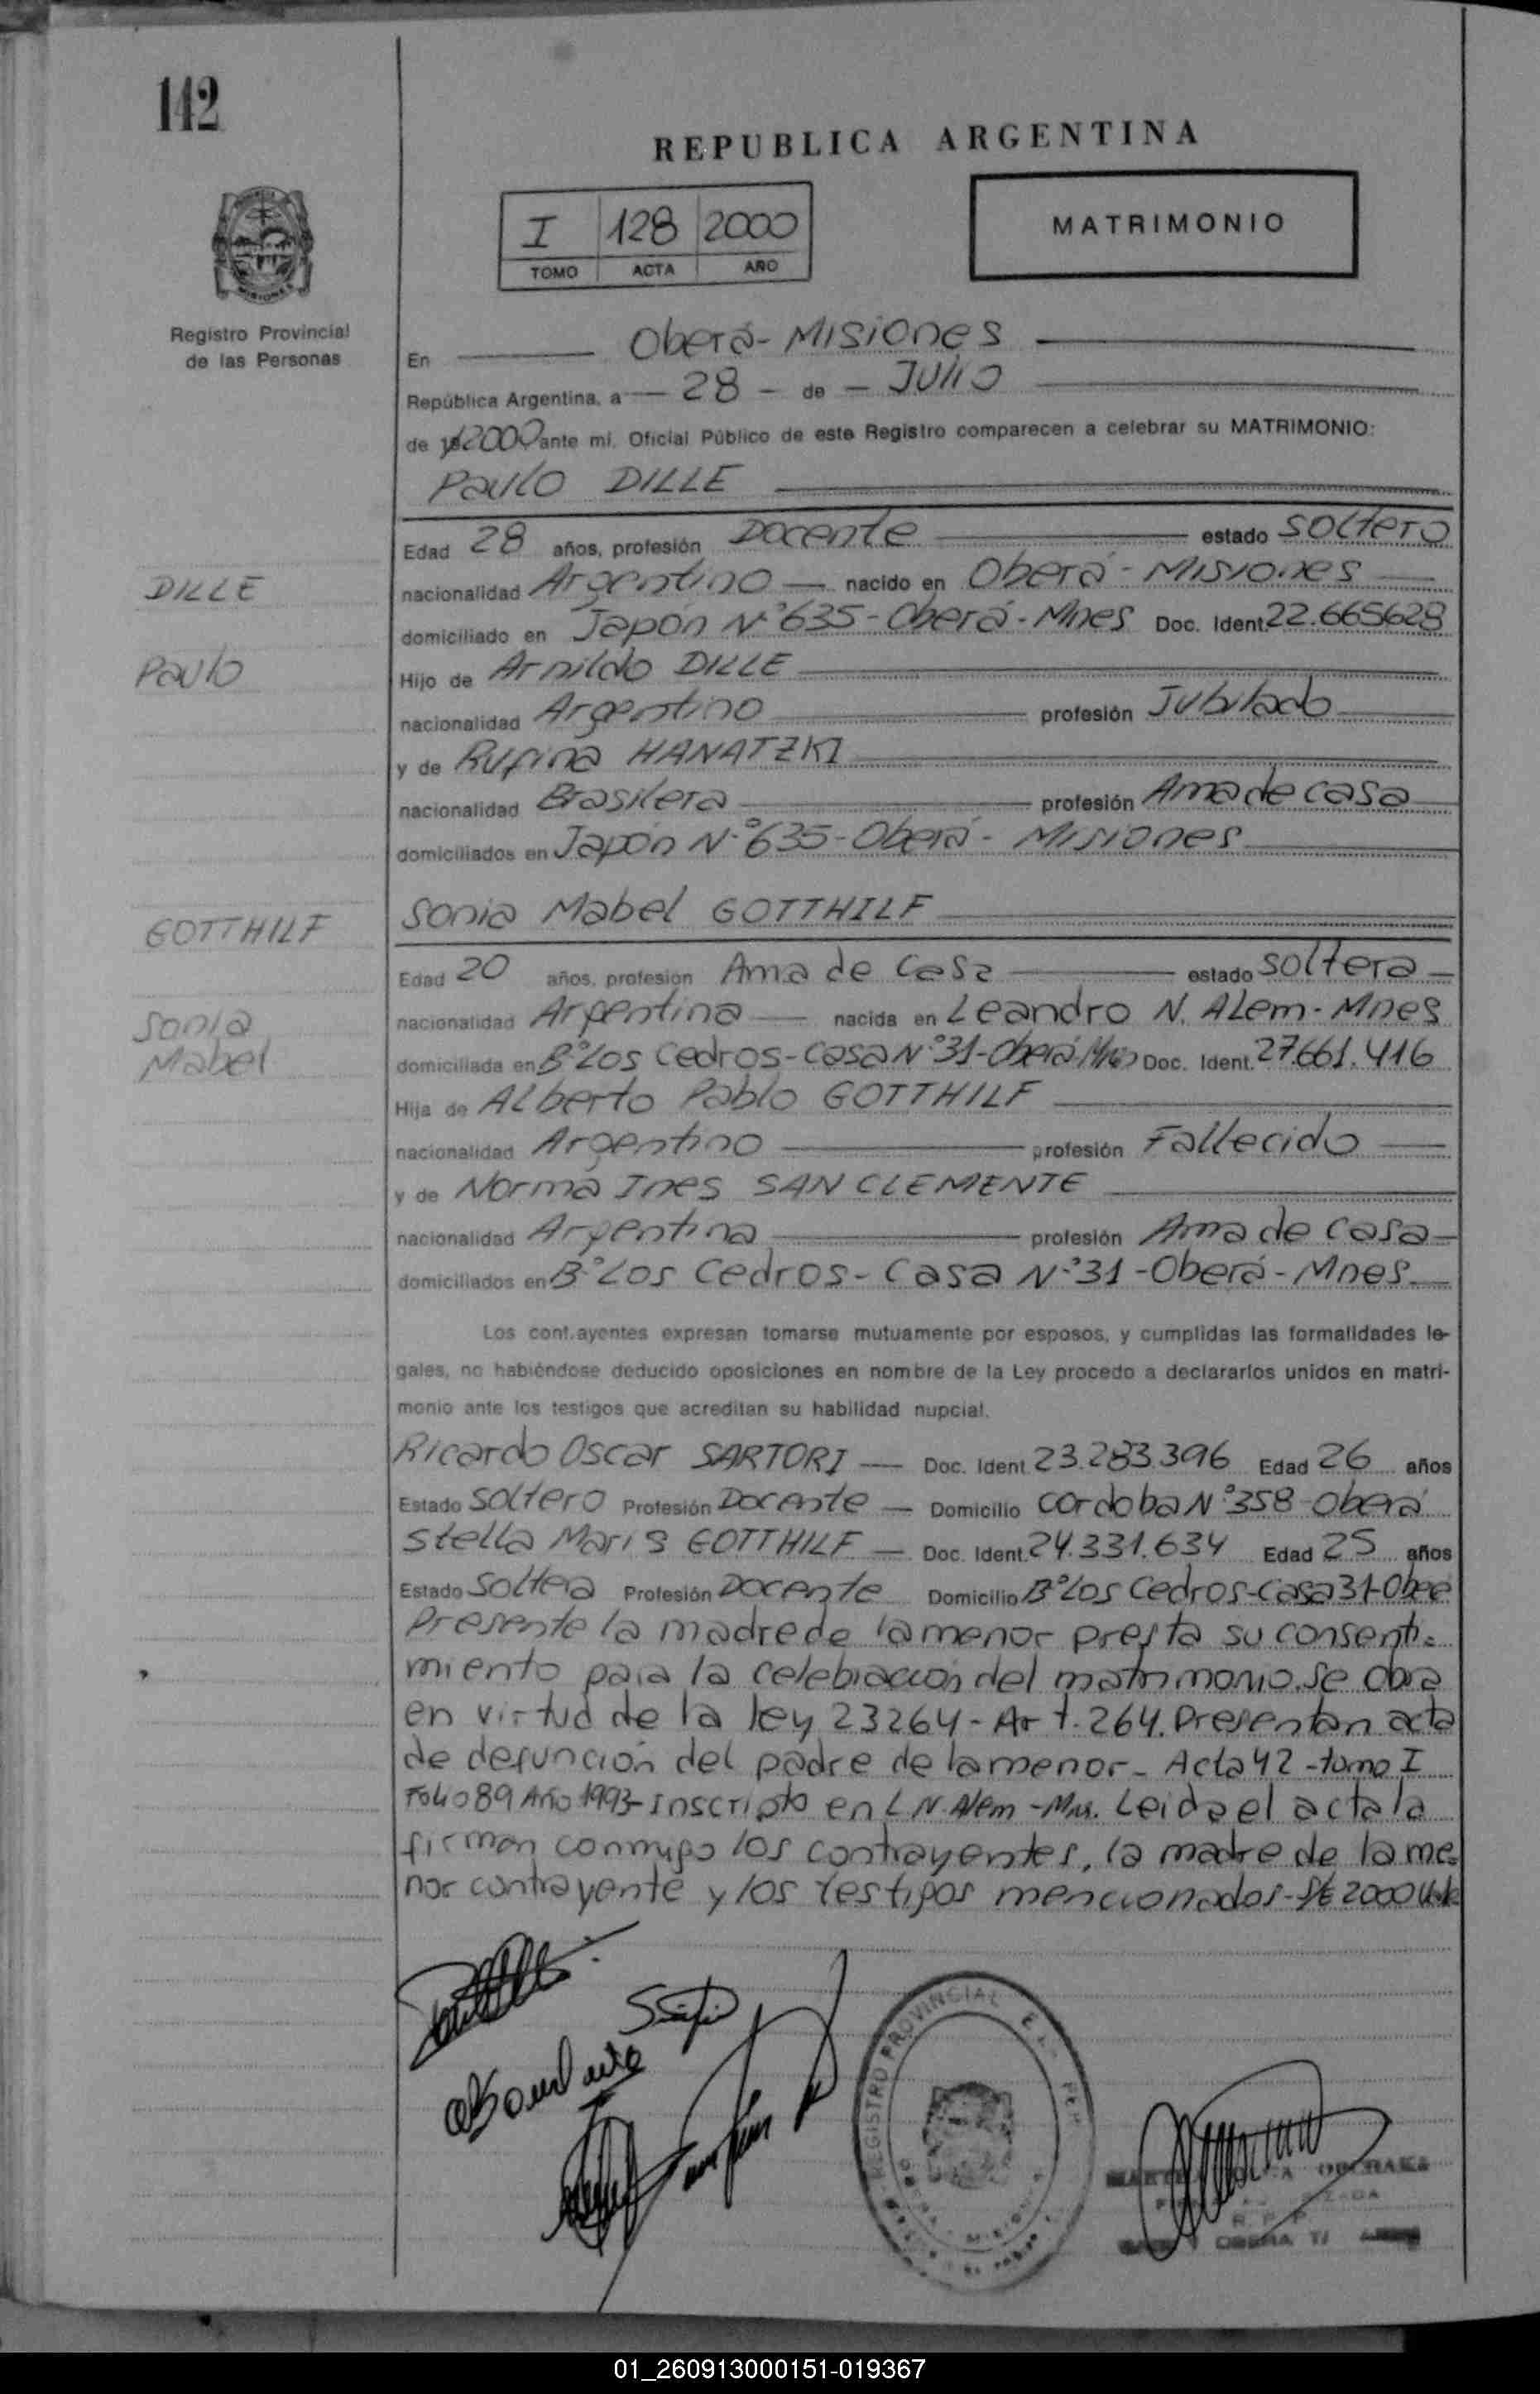 142
REPUBLICA ARGENTINA
I 128 2000
TOMO ACTA AÑO
MATRIMONIO
Registro Provincial
de las Personas
En Oberá - Misiones
República Argentina, a 28 - de - Julio
de 2000 ante mí, Oficial Público de este Registro comparecen a celebrar su MATRIMONIO:
Paulo DILLE
Edad 28 años, profesión Docente estado Soltero
DILLE
nacionalidad Argentino nacido en Oberá - Misiones
domiciliado en Japón N° 635 - Oberá - Mnes Doc. Ident. 22.665628
Paulo
Hijo de Arnildo DILLE
nacionalidad Argentino profesión Jubilado
y de Rufina HANATZKI
nacionalidad Brasilera profesión Ama de casa
domiciliados en Japón N° 635 - Oberá - Misiones
GOTTHILF
Sonia Mabel GOTTHILF
Edad 20 años, profesion Ama de Casa estado Soltera
Sonia
Mabel
nacionalidad Argentina nacida en Leandro N. Alem - Mnes
domiciliada en B° Los Cedros - Casa N° 31 - Oberá Doc. Ident. 27.661.416
Hija de Alberto Pablo GOTTHILF
nacionalidad Argentino profesión Fallecido
y de Norma Ines SAN CLEMENTE
nacionalidad Argentina profesión Ama de Casa
domiciliados en B° Los Cedros - Casa N° 31 - Oberá - Mnes.
Los cont.ayentes expresan tomarse mutuamente por esposos, y cumplidas las formalidades le-
gales, no habiéndose deducido oposiciones en nombre de la Ley procedo a declararlos unidos en matri-
monio ante los testigos que acreditan su habilidad nupcial.
Ricardo Oscar SARTORI Doc. Ident. 23.283.396 Edad 26 años
Estado Soltero Profesión Docente Domicilio Cordoba N° 358 - Oberá
Stella Maris GOTTHILF Doc. Ident. 24.331.634 Edad 25 años
Estado Soltera Profesión Docente Domicilio B° Los Cedros - Casa 31 -
Presente la madre de la menor presta su consenti-
miento para la celebración del matrimonio. Se obra
en virtud de la ley 23264 - Art. 264. Presentan acta
de defunción del padre de la menor - Acta 42 - tomo I
Folio 89 Año 1993 - Inscripto en L.N. Alem - Mns. Leida el acta la
firman conmigo los contrayentes, la madre de la me-
nor contrayente y los testigos mencionados - 2000
REGISTRO PROVINCIAL
R. P. P.
OBERA
01_260913000151-019367